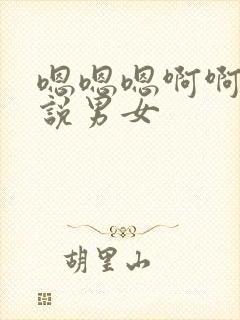 嗯嗯嗯啊啊
說男女
胡里山